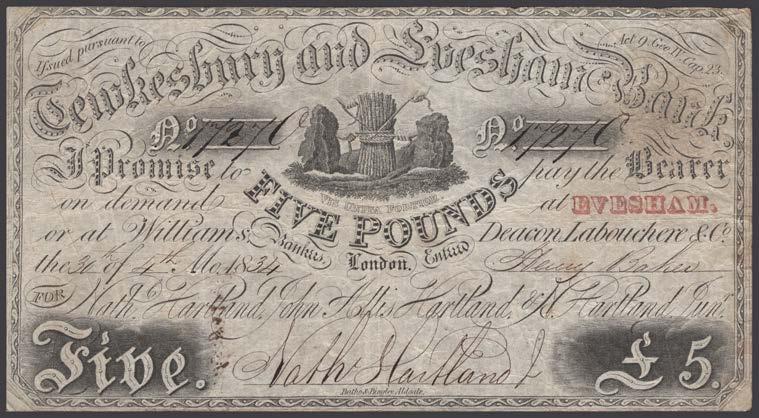 Issued pursuant to Act 9 Geo. IV. Cap. 23.
Tewkesbury and Evesham Bank
No 17276 No 17276
I Promise to pay the Bearer
VIS UNITA FORTIOR
FIVE POUNDS
on demand at EVESHAM.
or at Williams, Deacon, Labouchere & Co.
Bankers, London.
the 30th of 4th Mo. 1834 Henry Baker
FOR Nathl. Hartland, John Allis Hartland, & N. Hartland Junr.
Nath Hartland J
Five. £5.
Batho & Bingley, Aldgate.